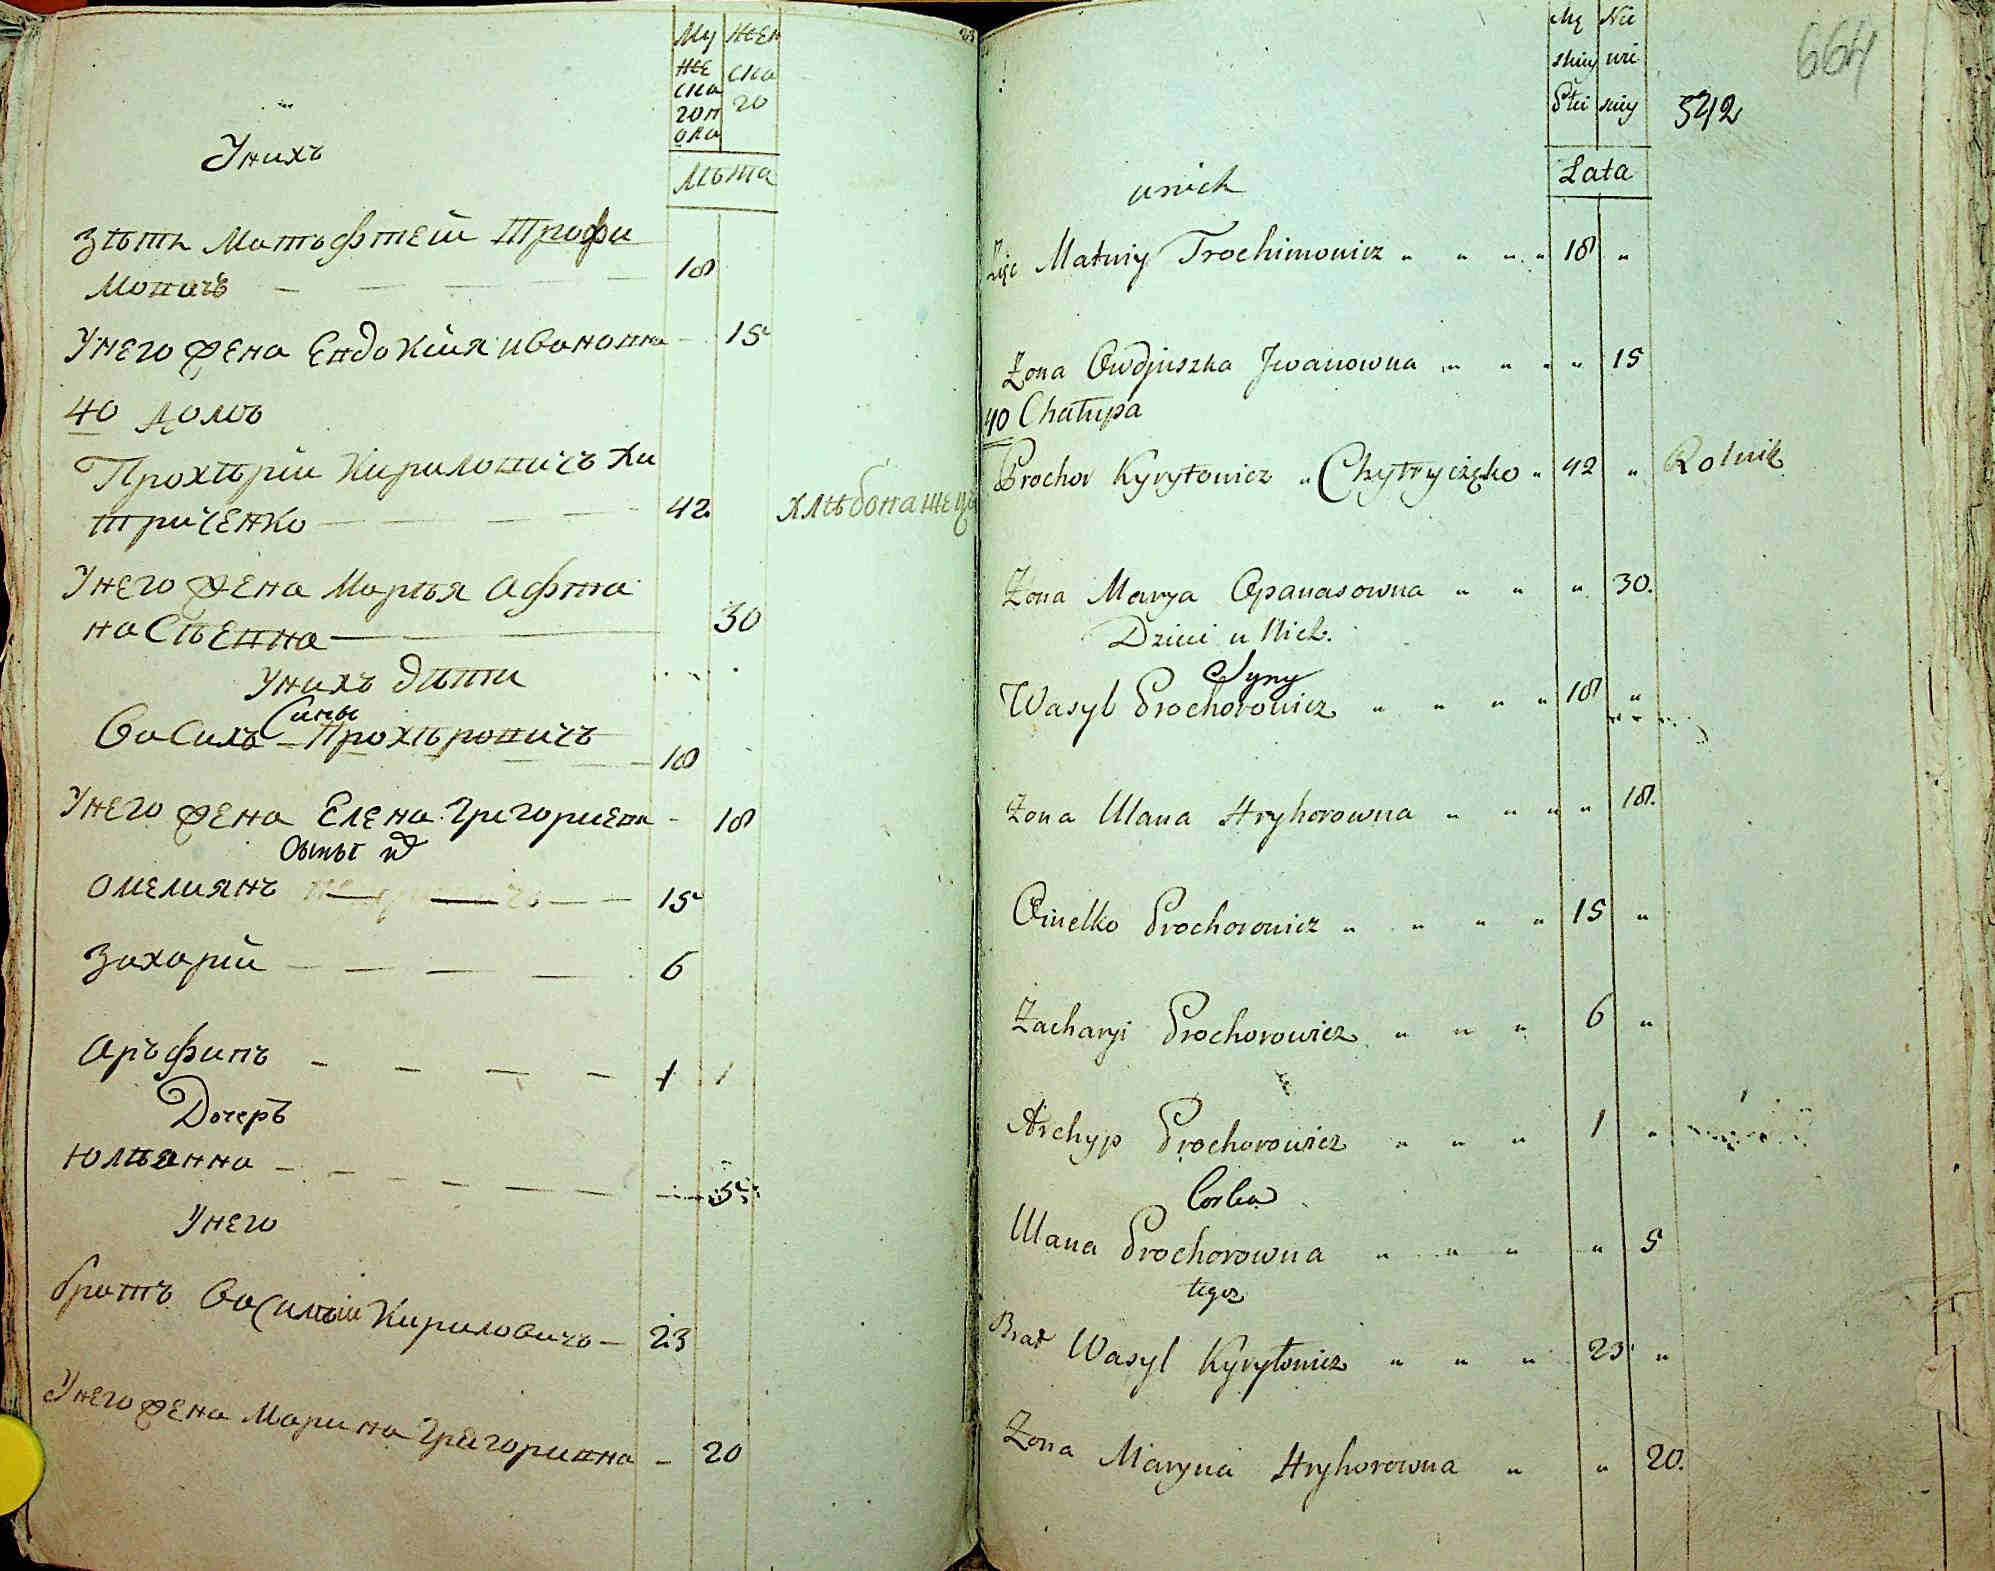 Му
жес
ка
гоп
ола
Жен
ска
го
Лѣта
Унихъ
Зѣть Матьфтей Трофи
мовичъ 18
Унего жена Евдокія ивановна 15
40 домъ
Прохѣрій Кириловичъ Хи
триченко 42. хлѣбопашецъ
Унего жена Марья Афта
насьевна 30
Унихъ дѣти
Сины
Василъ Прохѣровичъ 18
Унего жена Елена Григориевна 18
Сынъ
омелиянъ 15
Захарій 6
Аръфипъ 1
Дочеръ
юлианна 5
Унего
братъ Василий Кириловичъ 23
Унего жена Марина Григоривна 20
664
542
Mę
skiey
Płci
Nie
wie
sciey
Lata
u nich
Zięć Matwiy Trochimowicz " " " " 18 "
Żona Owdjuszka Jwanowna " " " " 15
40 Chałupa
Prochor Kyryłowicz " Chytryczęko " 42 " Rolnik
Żona Marya Opanasowna " " " 30.
Dzieci u Nich.
Syny
Wasyl Prochorowicz " " " " 18 "
Żona Ulana Hryhorowna " " " " 18.
Omelko Prochorowicz " " " " 15 "
Zacharyi Prochorowicz " " " 6 "
Archyp Prochorowicz " " " 1 "
Corka
Ulana Prochorowna " " " " 5
tegoż
Brat Wasyl Kyryłowicz " " " 23 "
Żona Maryna Hryhorowna " " 20.